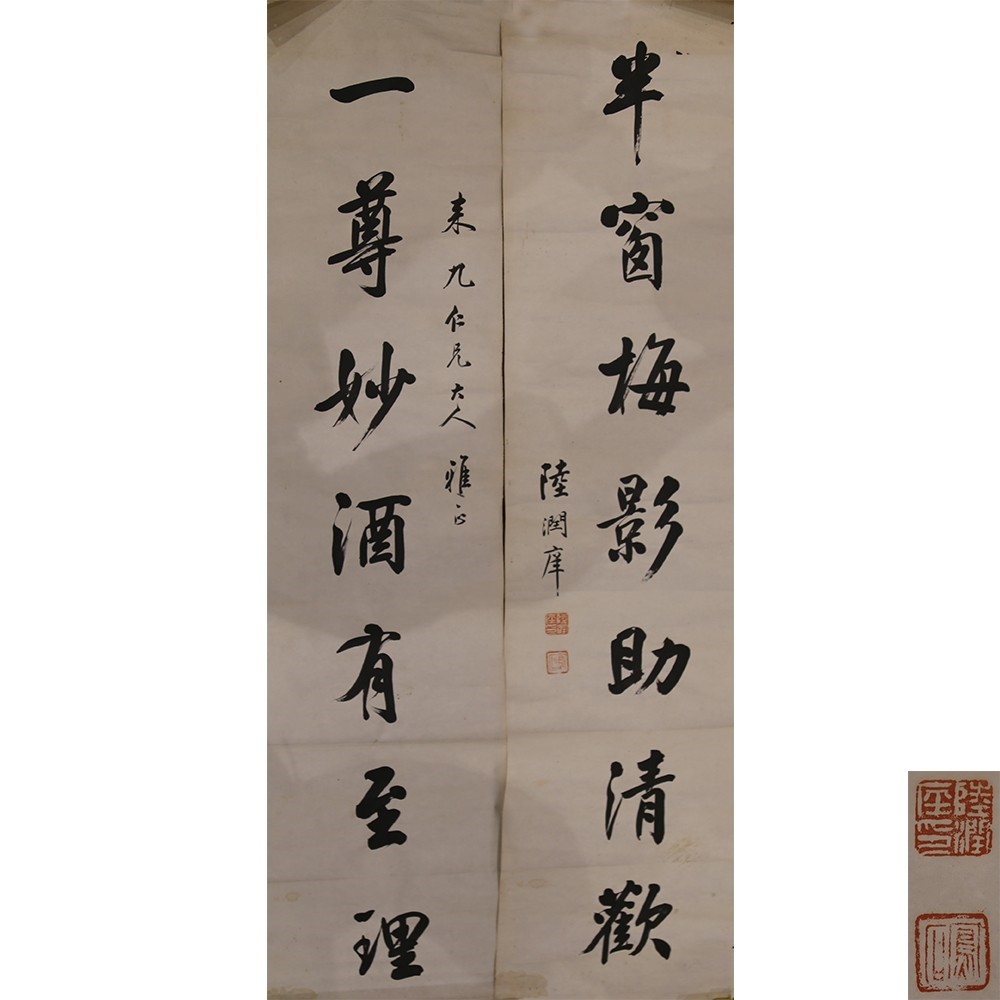 半窗梅影助清歡
陸潤庠
陸潤庠印
鳳石
耒九仁兄大人 雅正
一尊妙酒有至理
陸潤庠印
鳳石